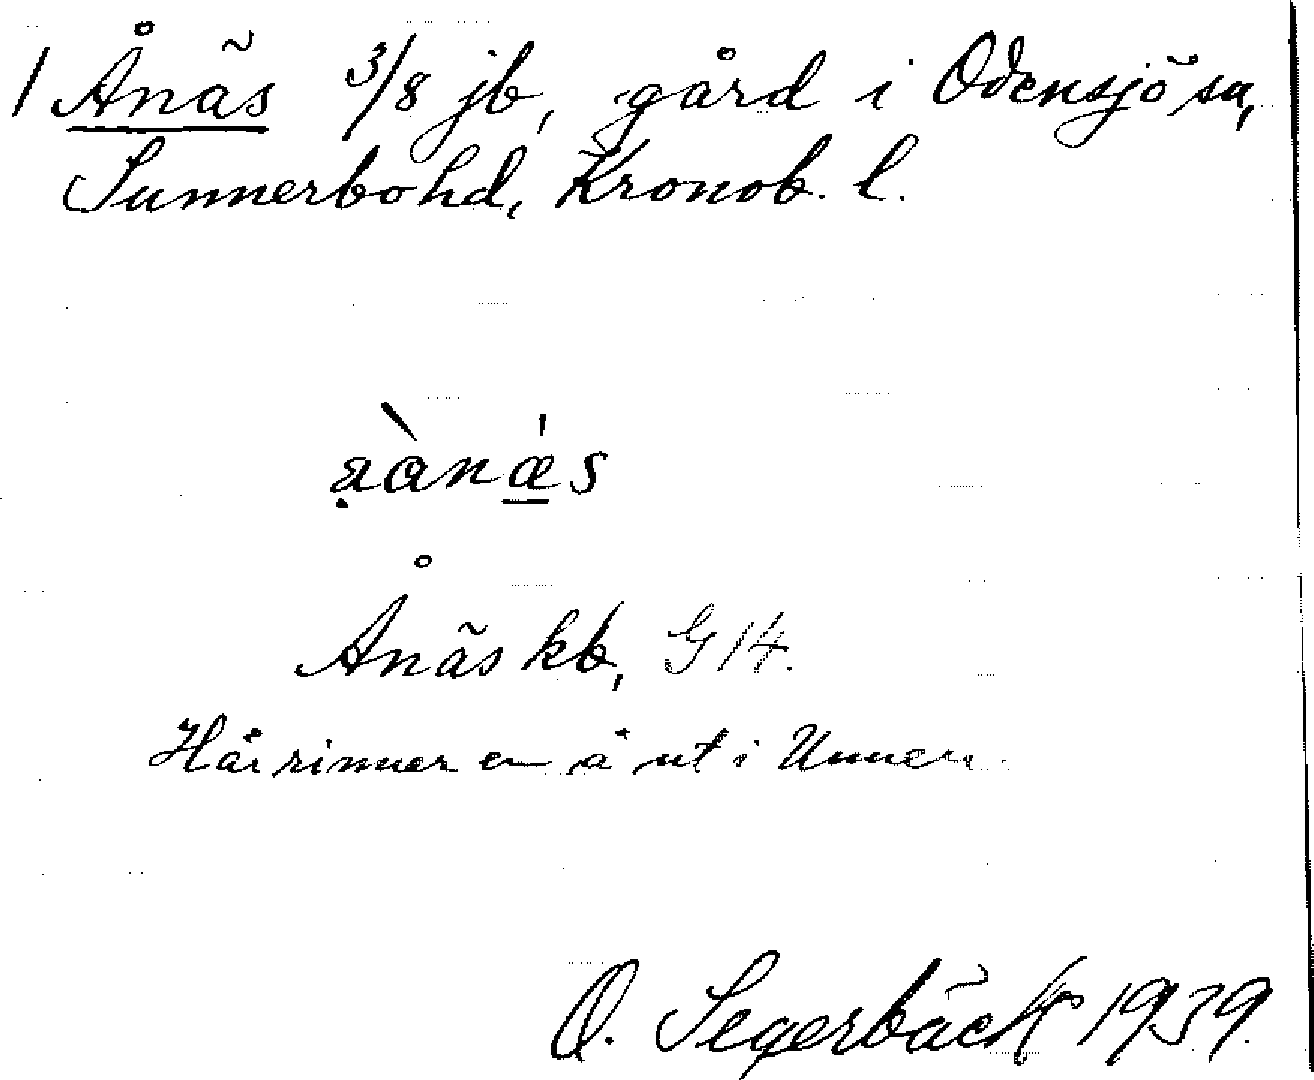 1 Ånäs 3/8 jb, gård i Odensjö sn,
Sunnerbo hd, Kronob. l.
aànǽ̲s
Ånäs kb, G 14.
Här rinner en å ut i Unnen.
O. Segerbäck 1939.